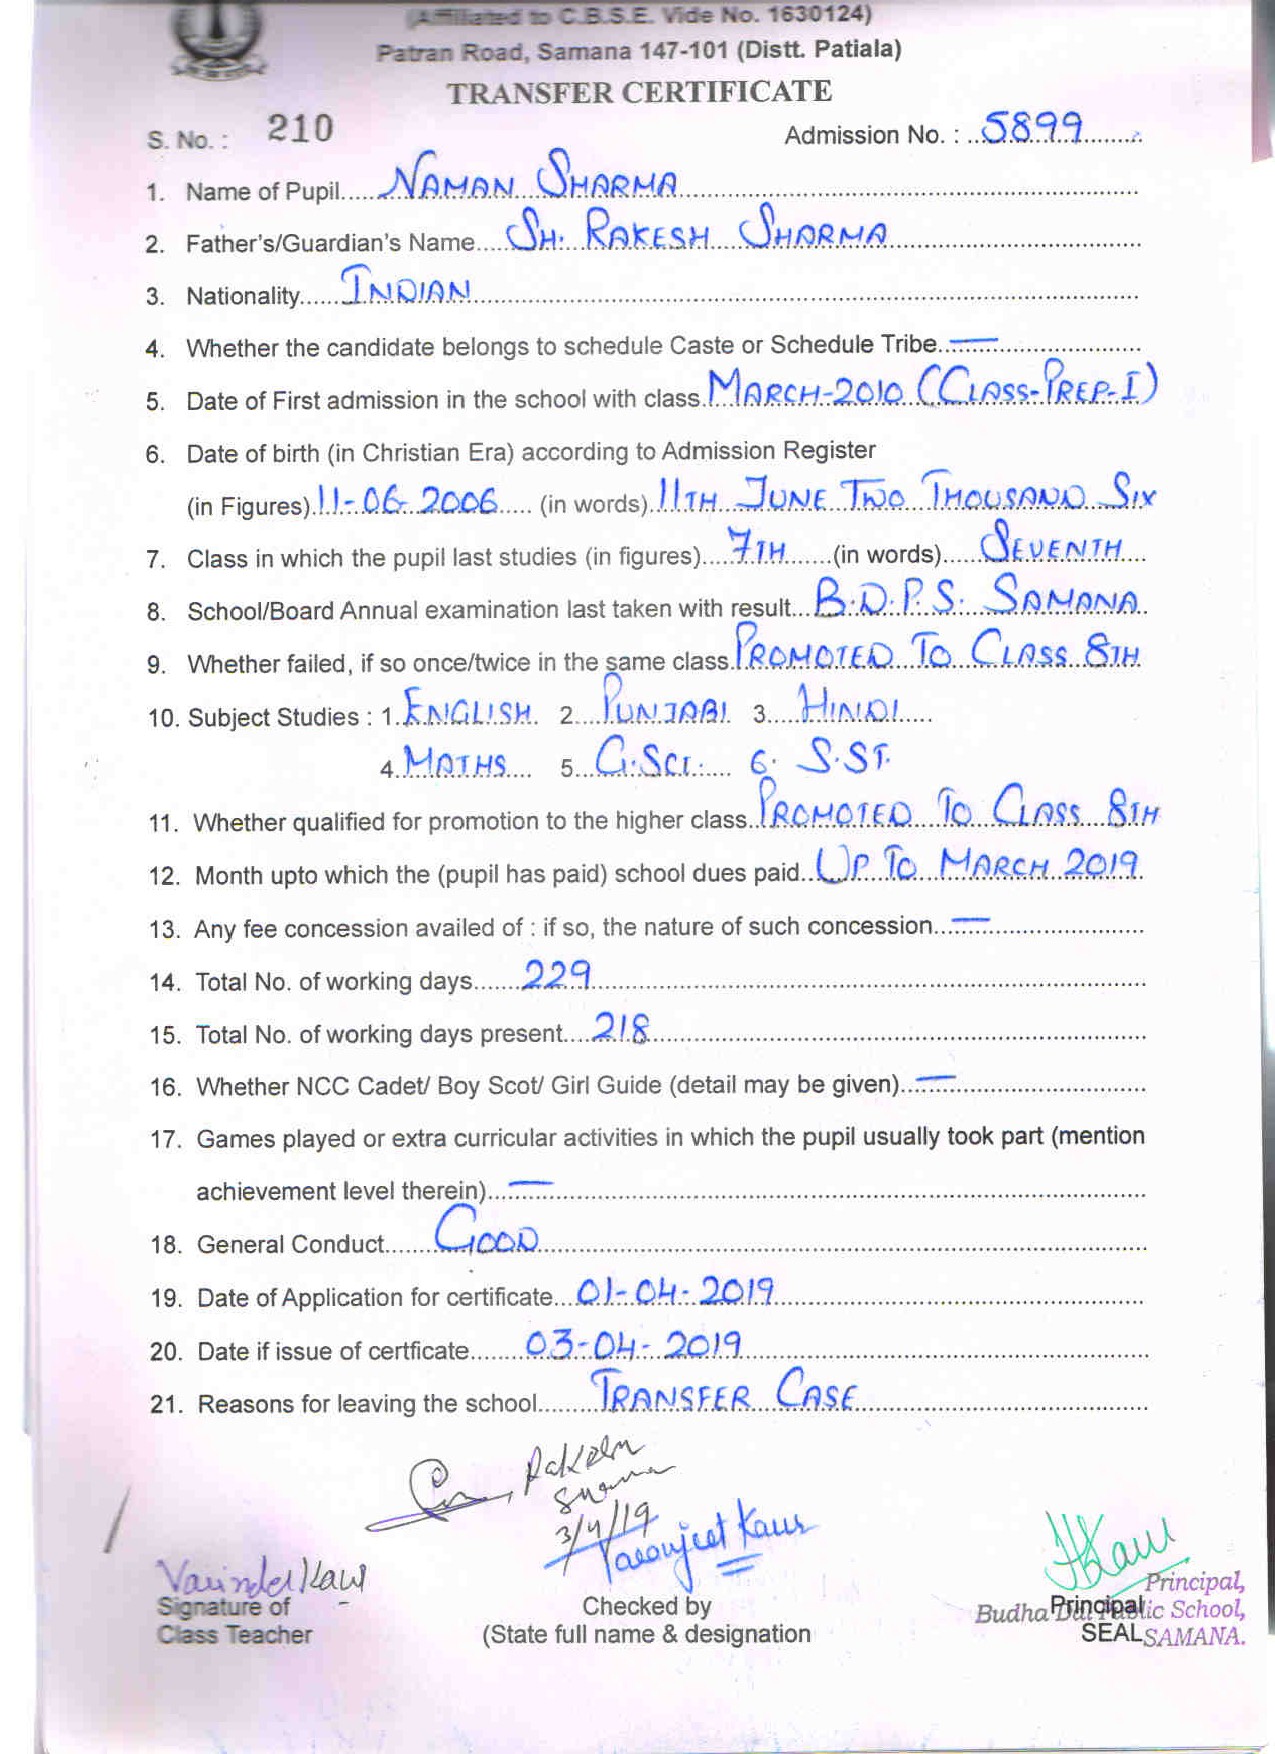 (Affiliated to C.B.S.E. Vide No. 1630124)
Patran Road, Samana 147-101 (Distt. Patiala)
TRANSFER CERTIFICATE
S. No. : 210 Admission No. : 5899
1. Name of Pupil NAMAN SHARMA
2. Father's/Guardian's Name SH. RAKESH SHARMA
3. Nationality INDIAN
4. Whether the candidate belongs to schedule Caste or Schedule Tribe —
5. Date of First admission in the school with class MARCH-2010 (CLASS-PREP-I)
6. Date of birth (in Christian Era) according to Admission Register
(in Figures) 11-06-2006 (in words) 11TH JUNE TWO THOUSAND SIX
7. Class in which the pupil last studies (in figures) 7TH (in words) SEVENTH
8. School/Board Annual examination last taken with result B.D.P.S. SAMANA
9. Whether failed, if so once/twice in the same class PROMOTED TO CLASS 8TH
10. Subject Studies : 1. ENGLISH 2. PUNJABI 3. HINDI
4. MATHS 5. G.SCI. 6. S.ST.
11. Whether qualified for promotion to the higher class PROMOTED TO CLASS 8TH
12. Month upto which the (pupil has paid) school dues paid UP TO MARCH 2019
13. Any fee concession availed of : if so, the nature of such concession —
14. Total No. of working days 229
15. Total No. of working days present 218
16. Whether NCC Cadet/ Boy Scot/ Girl Guide (detail may be given) —
17. Games played or extra curricular activities in which the pupil usually took part (mention
achievement level therein) —
18. General Conduct GOOD
19. Date of Application for certificate 01-04-2019
20. Date if issue of certficate 03-04-2019
21. Reasons for leaving the school TRANSFER CASE
Rakesh
Sharma
3/4/19
Taranjeet Kaur
Varinder Kaur
Signature of
Class Teacher
Checked by
(State full name & designation
Principal,
Budha Dal Public School,
SAMANA.
Principal
SEAL